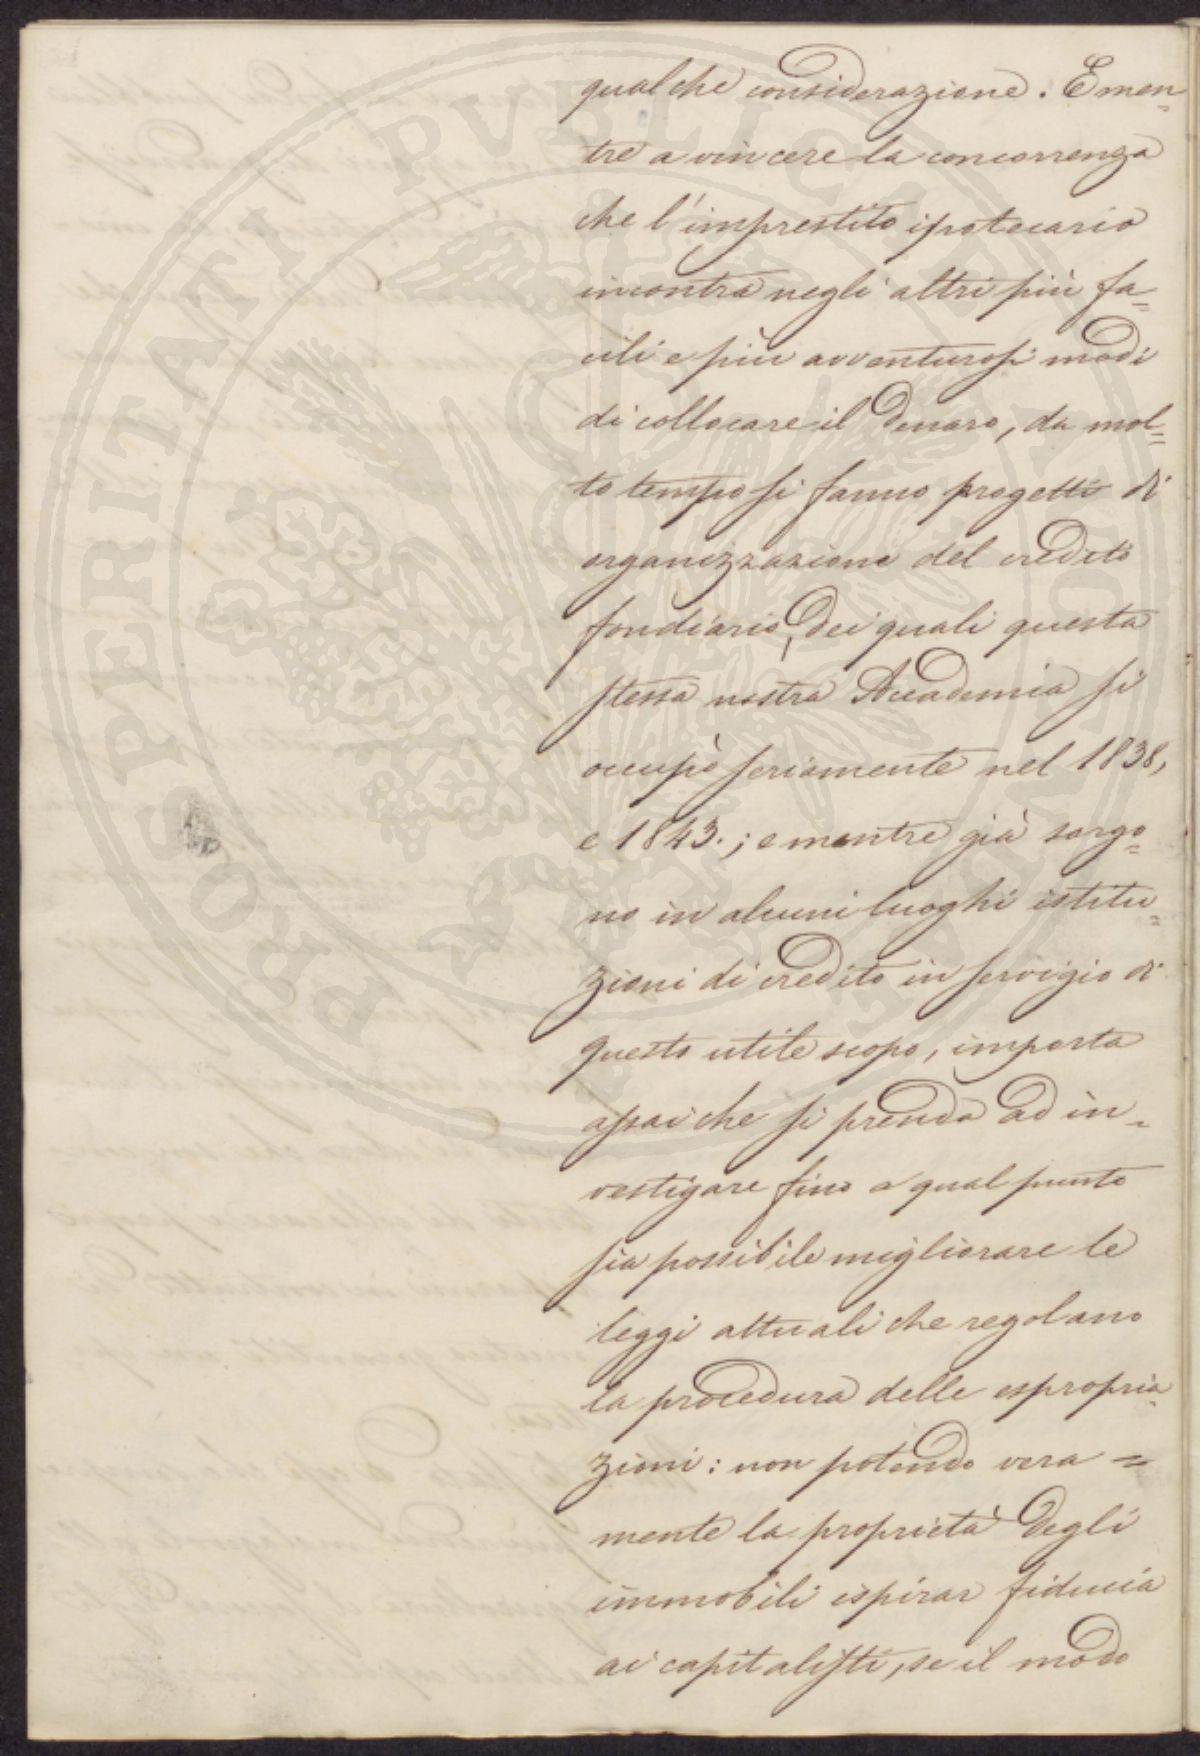 qualche considerazione. E men=
tre a vincere la concorrenza
che l'imprestito ipotecario
incontra negli altri più fa=
cili e più avventurosi modi
di collocare il denaro, da mol=
to tempo si fanno progetti di
organizzazione del credito
fondiario, dei quali questa
stessa nostra Accademia si
occupò seriamente nel 1838,
e 1843.; e mentre già sorgo=
no in alcuni luoghi istitu=
zioni di credito in servigio di
questo utile scopo, importa
assai che si prenda ad in=
vestigare fino a qual punto
sia possibile migliorare le
leggi attuali che regolano
la procedura delle espropria=
zioni: non potendo vera=
mente la proprietà degli
immobili ispirar fiducia
ai capitalisti, se il modo
PROSPERITATI PVBLICAE AVGENDAE